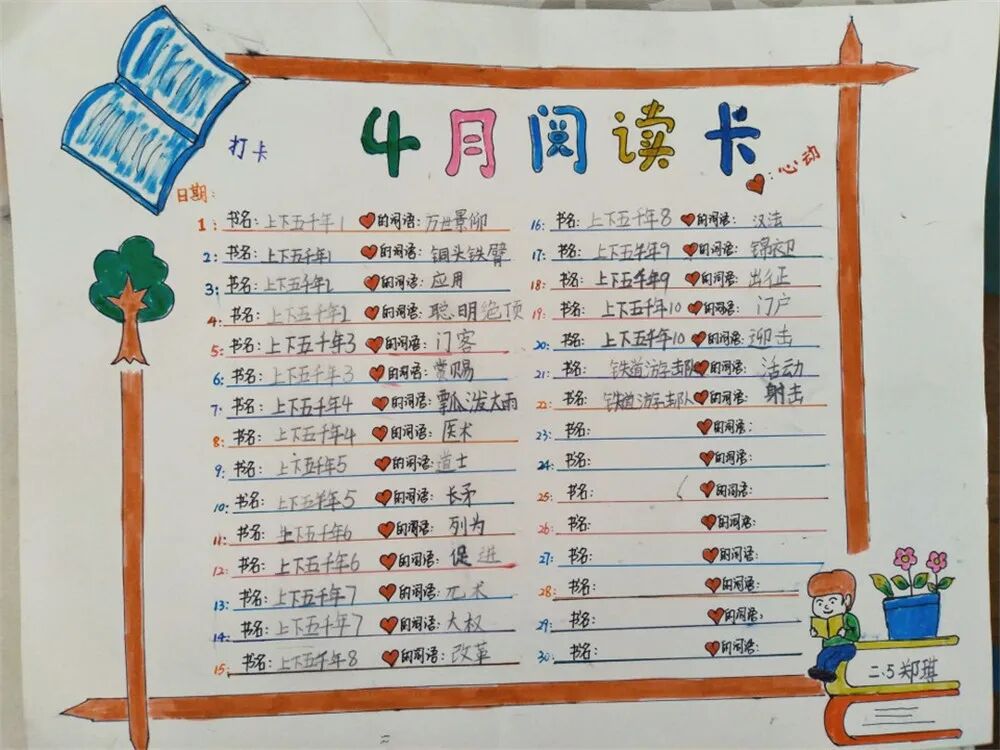 4月阅读卡
打卡
❤:心动
日期:
1: 书名: 上下五千年1 ❤的词语: 万世景仰
2: 书名: 上下五千年1 ❤的词语: 铜头铁臂
3: 书名: 上下五千年2 ❤的词语: 应用
4: 书名: 上下五千年2 ❤的词语: 聪明绝顶
5: 书名: 上下五千年3 ❤的词语: 门客
6: 书名: 上下五千年3 ❤的词语: 赏赐
7: 书名: 上下五千年4 ❤的词语: 瓢泼大雨
8: 书名: 上下五千年4 ❤的词语: 医术
9: 书名: 上下五千年5 ❤的词语: 道士
10: 书名: 上下五千年5 ❤的词语: 长矛
11: 书名: 上下五千年6 ❤的词语: 列为
12: 书名: 上下五千年6 ❤的词语: 促进
13: 书名: 上下五千年7 ❤的词语: 兀术
14: 书名: 上下五千年7 ❤的词语: 大权
15: 书名: 上下五千年8 ❤的词语: 改革
16: 书名: 上下五千年8 ❤的词语: 汉法
17: 书名: 上下五千年9 ❤的词语: 锦衣卫
18: 书名: 上下五千年9 ❤的词语: 出征
19: 书名: 上下五千年10 ❤的词语: 门户
20: 书名: 上下五千年10 ❤的词语: 迎击
21: 书名: 铁道游击队 ❤的词语: 活动
22: 书名: 铁道游击队 ❤的词语: 射击
23: 书名: ❤的词语:
24: 书名: ❤的词语:
25: 书名: ❤的词语:
26: 书名: ❤的词语:
27: 书名: ❤的词语:
28: 书名: ❤的词语:
29: 书名: ❤的词语:
30: 书名: ❤的词语:
二.5郑琪